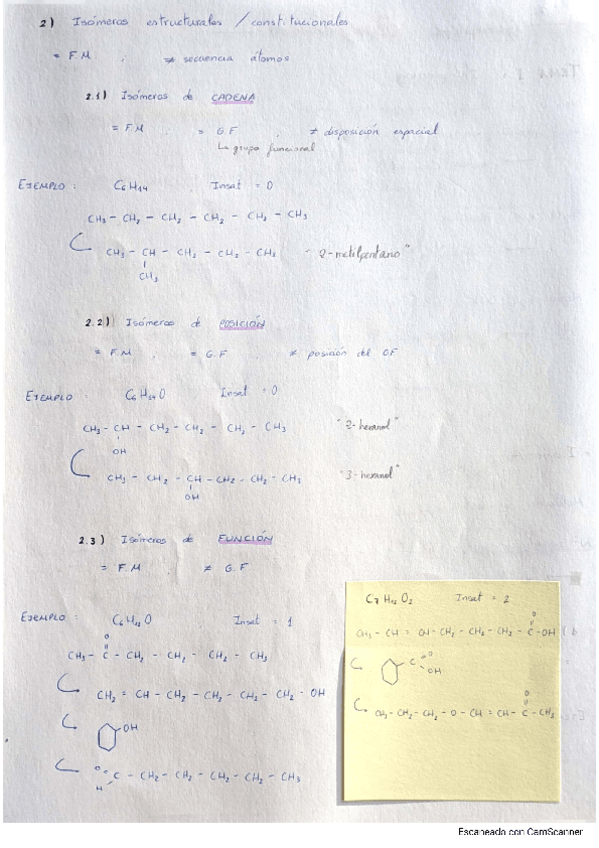 2) Isómeros estructurales / constitucionales
= F.M , ≠ secuencia átomos
2.1) Isómeros de CADENA
= F.M , = G.F , ≠ disposición espacial
↳ grupo funcional
EJEMPLO : C6H14 Insat = 0
CH3 - CH2 - CH2 - CH2 - CH2 - CH3
CH3 - CH - CH2 - CH2 - CH3 "2-metilpentano"
CH3
2.2) Isómeros de POSICIÓN
= F.M , = G.F , ≠ posición del GF
EJEMPLO C6H14O Insat = 0
CH3 - CH - CH2 - CH2 - CH2 - CH3 "2-hexanol"
OH
CH3 - CH2 - CH - CH2 - CH2 - CH3 "3-hexanol"
OH
2.3) Isómeros de FUNCIÓN
= F.M ≠ G.F
EJEMPLO : C6H12O Insat = 1
O
CH3 - C - CH2 - CH2 - CH2 - CH3
CH2 = CH - CH2 - CH2 - CH2 - CH2 - OH
OH
O
C - CH2 - CH2 - CH2 - CH2 - CH3
H
C7H12O2 Insat = 2
O
CH3 - CH = CH - CH2 - CH2 - CH2 - C - OH
C O
OH
O
CH3 - CH2 - CH2 - O - CH = CH - C - CH3
Escaneado con CamScanner